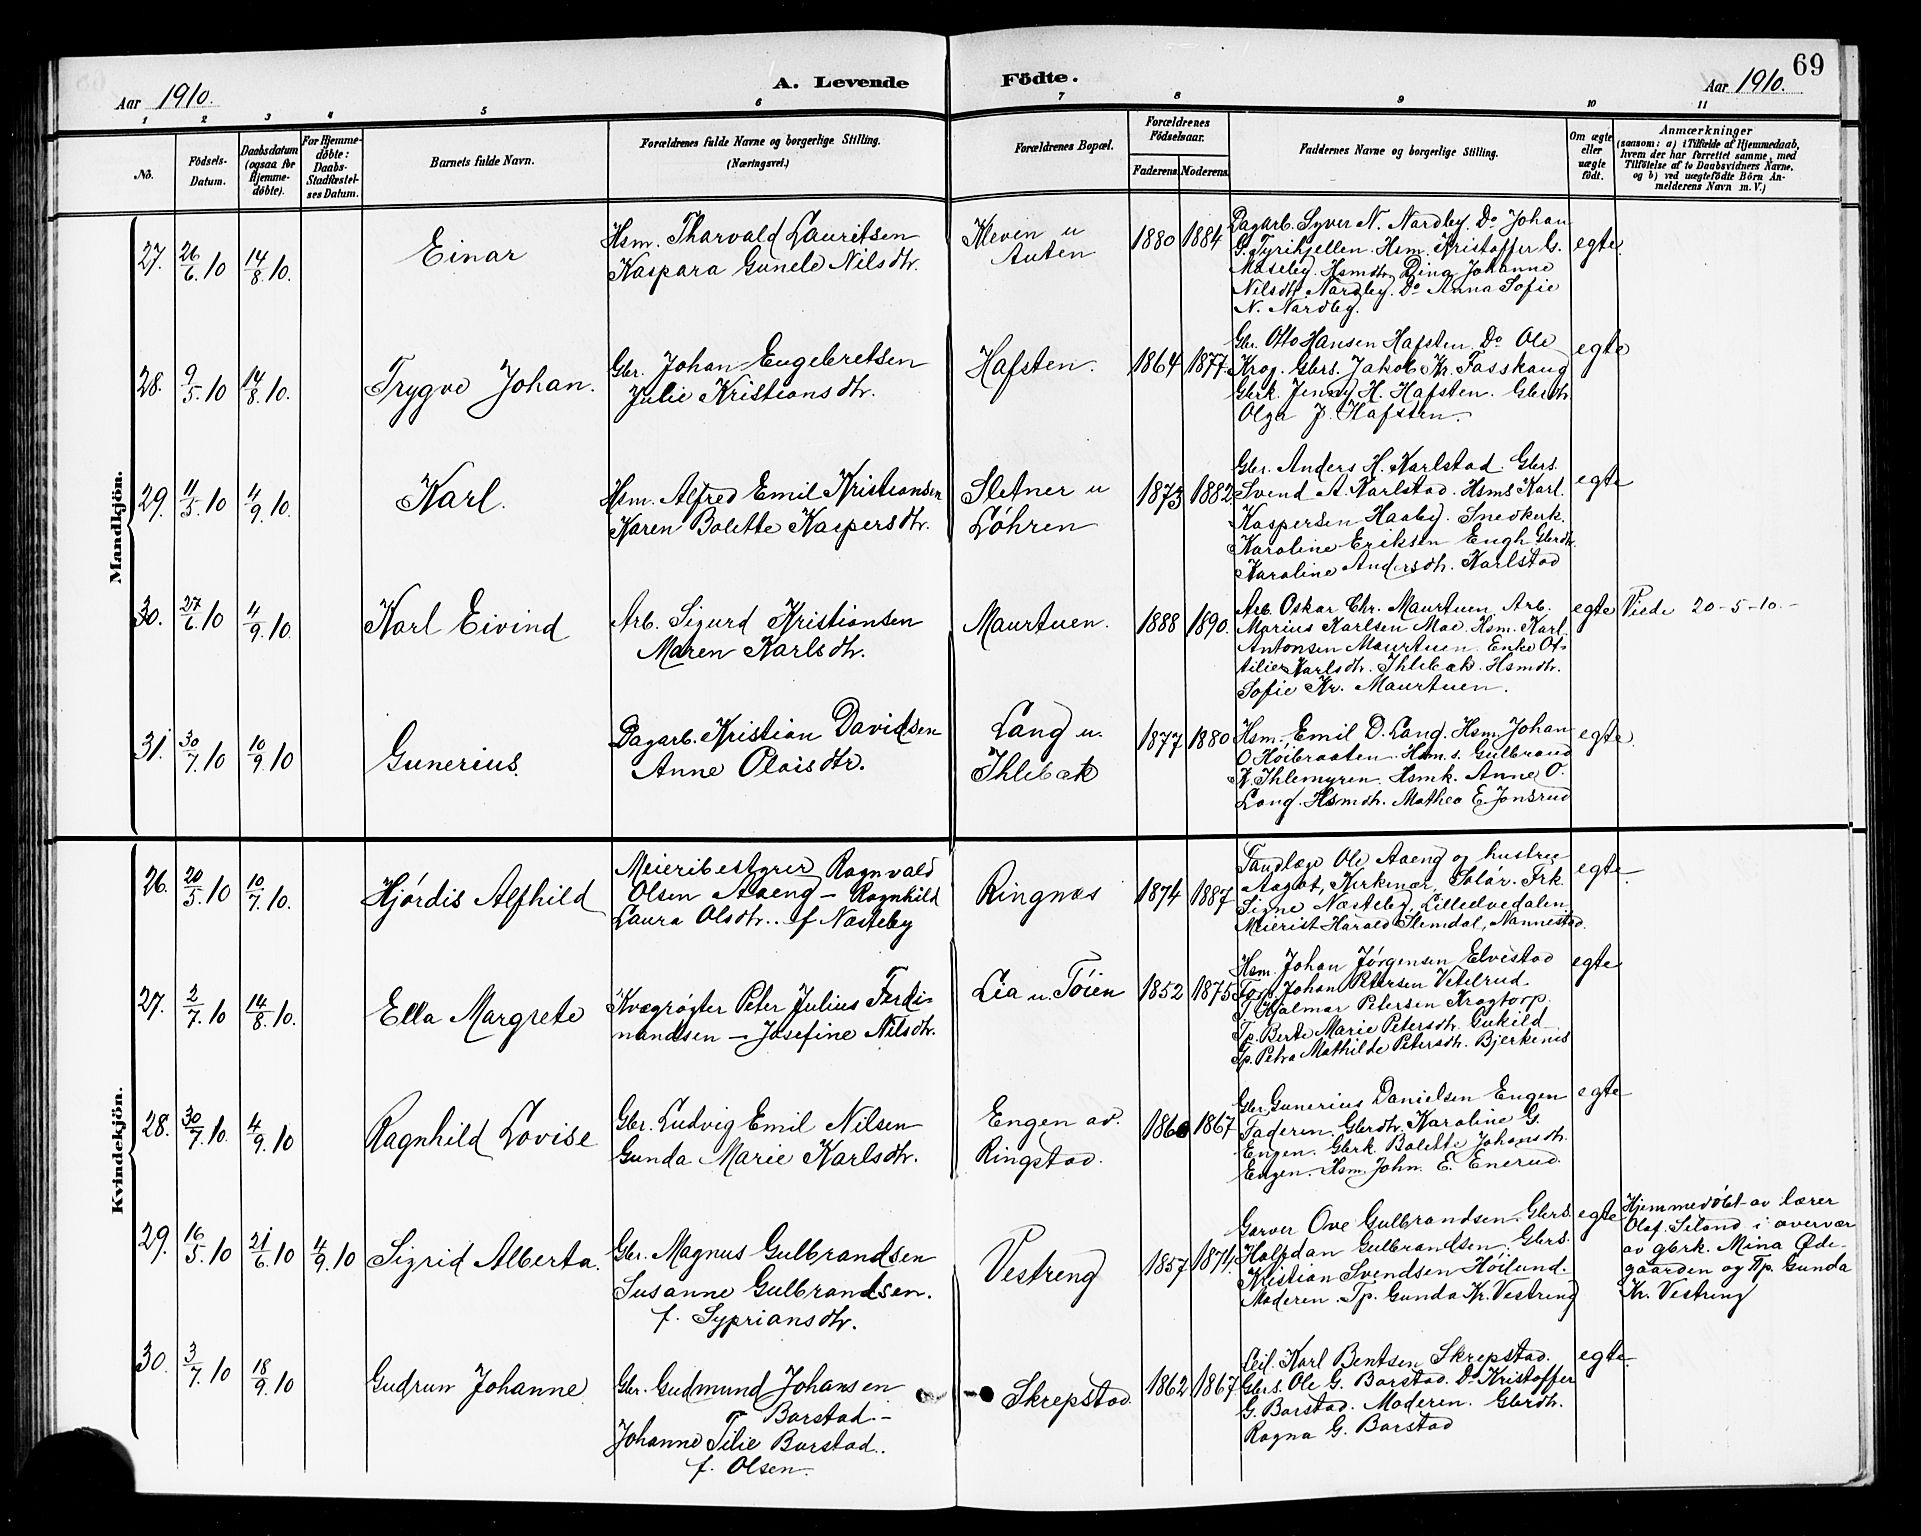 69
Aar 1910.
A. Levende Födte.
Aar 1910.
1 2 3 4 5 6 7 8 9 10 11
No.
Födsels-Datum.
Daabsdatum (ogsaa for Hjemme-döbte).
For Hjemme-döbte: Daabs-Stadfæstel-ses Datum.
Barnets fulde Navn.
Forældrenes fulde Navne og borgerlige Stilling.
(Næringsvei.)
Forældrenes Bopæl.
Forældrenes Födselsaar.
Faderens Moderens
Faddernes Navne og borgerlige Stilling.
Om ægte eller uægte födt.
Anmærkninger
(saasom: a) i Tilfælde af Hjemmedaab, hvem der har forrettet samme, med Tilföielse af to Daabsvidners Navne, og b) ved uægtefödte Börn An-melderens Navn m. V.)
Mandkjön.
27. 26/6 10 14/8 10. Einar
Hsm. Tharvald Lauritsen
Kaspara Gunele Nilsdtr.
Kleven u
Auten
1880 1884
Dagarb. Syver N. Nordby. Do Johan
G. Tyrihjellen. Hsm. Kristoffer G.
Moseby. Hsmdtr. Dina Johanne
Nilsdtr. Nordby. Do Anna Sofie
N. Nordby.
egte.
28. 9/5 10 14/8 10. Trygve Johan.
Gbr. Johan Engebretsen
Julie Kristiansdtr.
Hafsten.
1864 1877.
Gbr. Otto Hansen Hafsten. Do Ole
Krog. Gbrs. Jakob Kr. Fosskaug
Gbrk. Jenny H. Hafsten. Gbrdtr.
Olga J. Hafsten.
egte
29. 11/5 10 4/9 10. Karl.
Hsm. Alfred Emil Kristiansen
Karen Bolette Kaspersdtr.
Sletner u
Løhren
1873 1882.
Gbr. Anders H. Karlstad. Gbrs.
Svend A. Karlstad. Hsms Karl.
Kaspersen Haaby. Snedkerk.
Karoline Eriksen Engh Gbrdtr.
Karoline Andersdtr. Karlstad
egte
30. 27/6 10 4/9 10. Karl Eivind
Arb. Sigurd Kristiansen
Maren Karlsdtr.
Maurtuen.
1888 1890.
Arb. Oskar Chr. Maurtuen. Arb.
Marius Karlsen Moe. Hsm. Karl.
Antonsen Maurtuen. Enke Ot-
tilie Karlsdtr. Ihlebæk. Hsmdtr.
Sofie Kr. Maurtuen.
egte
Viede 20-5-10.-
31. 30/7 10 10/9 10 Gunerius.
Dagarb. Kristian Davidsen
Anne Olaisdtr.
Lang u.
Ihlebæk
1877 1880
Hsm. Emil D. Lang. Hsm. Johan
O Höibraaten. Hsm.s. Gulbrand
K. Ihlemyren. Hsmk. Anne O.
Lang. Hsmdtr. Mathea E. Jonsrud
egte.
Kvindekjön.
26. 20/5 10 10/7 10. Hjördis Alfhild
Meieribestyrer Ragnvald
Olsen Aaeng - Ragnhild
Laura Olsdtr. f Næsteby
Ringnæs
1874 1887
Tandlæge Ole Aaeng og hustru
Aagot, Kirkenær, Solör. Frk.
Signe Næsteby, Lilleelvedalen
Meierist Harald Slemdal, Nannestad.
egte.
27. 2/7 10 14/8 10. Ella Margrete
Kvægrøgter Peter Julius Ferdi-
nandsen - Josefine Nilsdtr.
Lia u. Töien
1852 1875
Hsm. Johan Jørgensen Elvestad
Johan Petersen Vetelrud.
Hjalmar Petersen Krogtorp
Tp. Berte Marie Petersdtr. Gukild
Tp. Petra Mathilde Petersdtr. Bjerkenes
egte
28. 30/7 10. 4/9 10 Ragnhild Lovise
Gbr. Ludvig Emil Nilsen
Gunda Marie Karlsdtr.
Engen av.
Ringstad.
1860 1867
Gbr. Gunerius Danielsen Engen
Faderen. Gbrdtr. Karoline G.
Engen. Gbrk. Bolette Johansdtr.
Engen. Hsm. John. E. Enerud.
egte
29. 16/5 10 21/6 10 4/9 10 Sigrid Alberta.
Gbr. Magnus Gulbrandsen
Susanne Gulbrandsen.
f. Sypriansdtr.
Vestreng
1857 1874.
Garver Ove Gulbrandsen. Gbrs.
Halfdan Gulbrandsen. Gbrs.
Kristian Svendsen Höilund.
Moderen. Tp. Gunda Kr. Vestreng
egte
Hjemmedøbt av lærer
Olaf Seland i overvær
av gbrk. Mina Øde-
gaarden og Tp. Gunda
Kr. Vestreng
30. 3/7 10 18/9 10 Gudrun Johanne
Gbr. Gudmund Johansen
Borstad -
Johanne Tilie Borstad.
f. Olsen.
Skrepstad.
1862 1867
Karl Bentsen Skrepstad.
Gbrs. Ole G. Borstad. Do Kristoffer
G. Borstad. Moderen. Gbrdtr.
Ragna G. Borstad
egte.